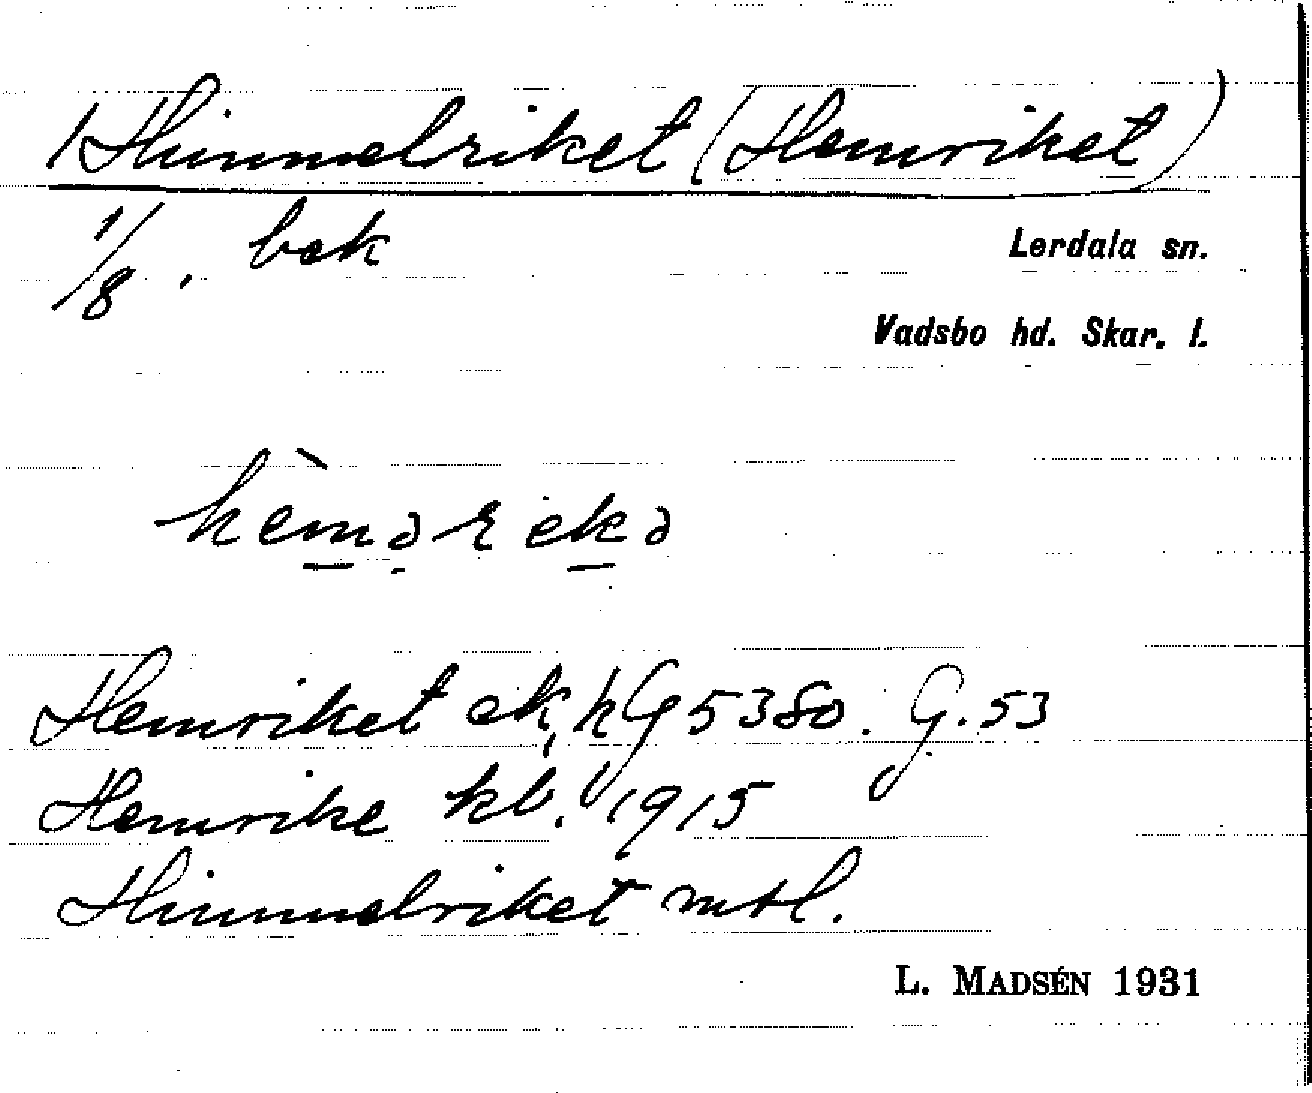 1 Himmelriket (Hemriket)
1/8. bek
Lerdala sn.
Vadsbo hd. Skar. l.
hèmərekə
Hemriket ek, hG 5380. G. 53
Hemrike kb. 1915
Himmelriket mtl.
L. MADSÉN 1931